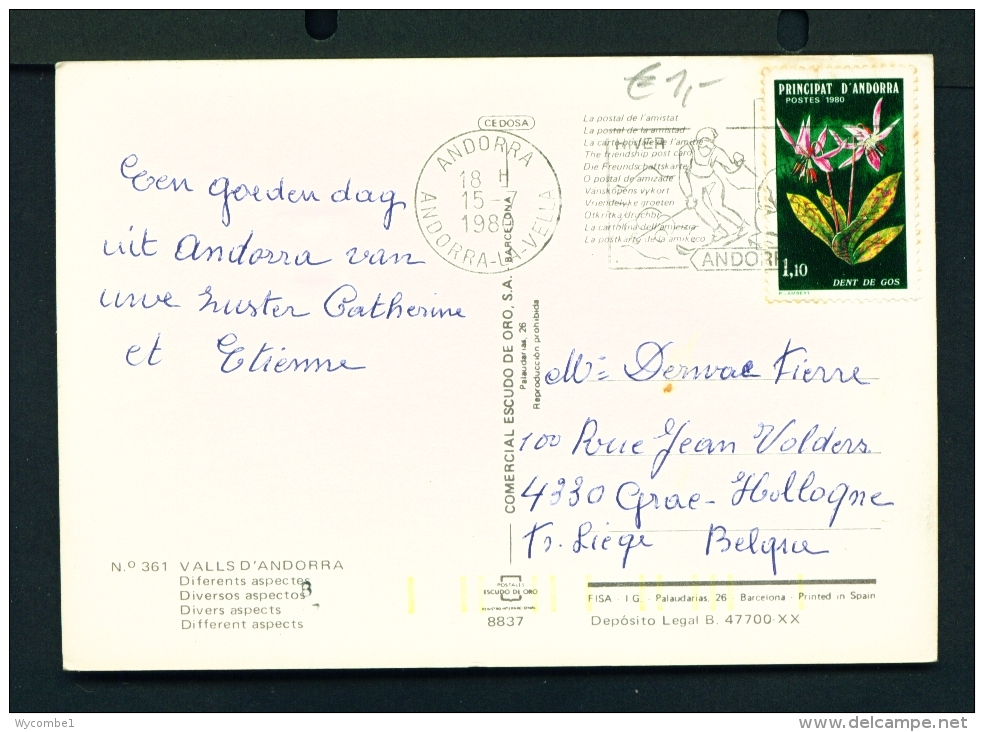 € 1,-
CEDOSA
La postal de l'amistat
La postal de la amistad
La carte postale de l'amitié
The friendship post card
Die Freundschaftskarte
O postal de amizade
Vanskapens vykort
Vriendelyke groeten
Otkritka druchbi
La cartolina dell'amicizia
La postkarto de la amikeco
HIVER
ANDORR
ANDORRA
18 H
15 - 7
198
ANDORRA-LA-VELLA
PRINCIPAT D'ANDORRA
POSTES 1980
1,10
DENT DE GOS
Een goeden dag
uit Andorra van
uwe zuster Catherine
et Etienne
COMERCIAL ESCUDO DE ORO, S.A. - BARCELONA
Palaudarias, 26
Reproducción prohibida
Mr Pierre
100 Rue Jean Volders
4330 Grâce-Hollogne
Liège Belgie
N.º 361 VALLS D'ANDORRA
Diferents aspectes
Diversos aspectos
Divers aspects
Different aspects
B
POSTALES
ESCUDO DE ORO
8837
FISA - I.G. - Palaudarias, 26 Barcelona - Printed in Spain
Depósito Legal B. 47700-XX
Wycombe1
http://www.delcampe.net